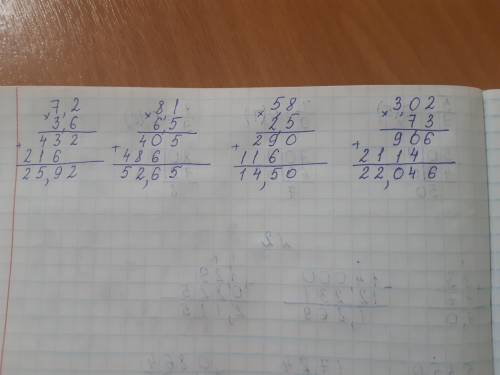 7,2
× 3,6
432
+ 216
25,92
8,1
× 6,5
405
+ 486
52,65
5,8
× 2,5
290
+ 116
14,50
3,02
× 7,3
906
+ 2114
22,046